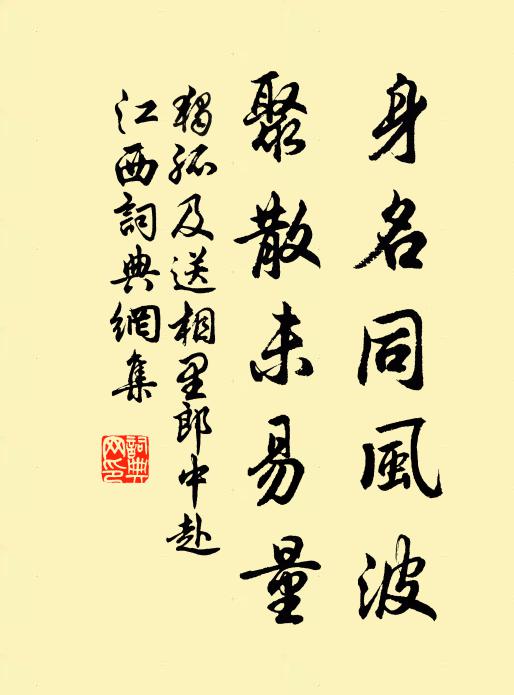 身名同風波
聚散未易量
獨孤及送相里郎中赴
江西詞典網集
詞典
网印